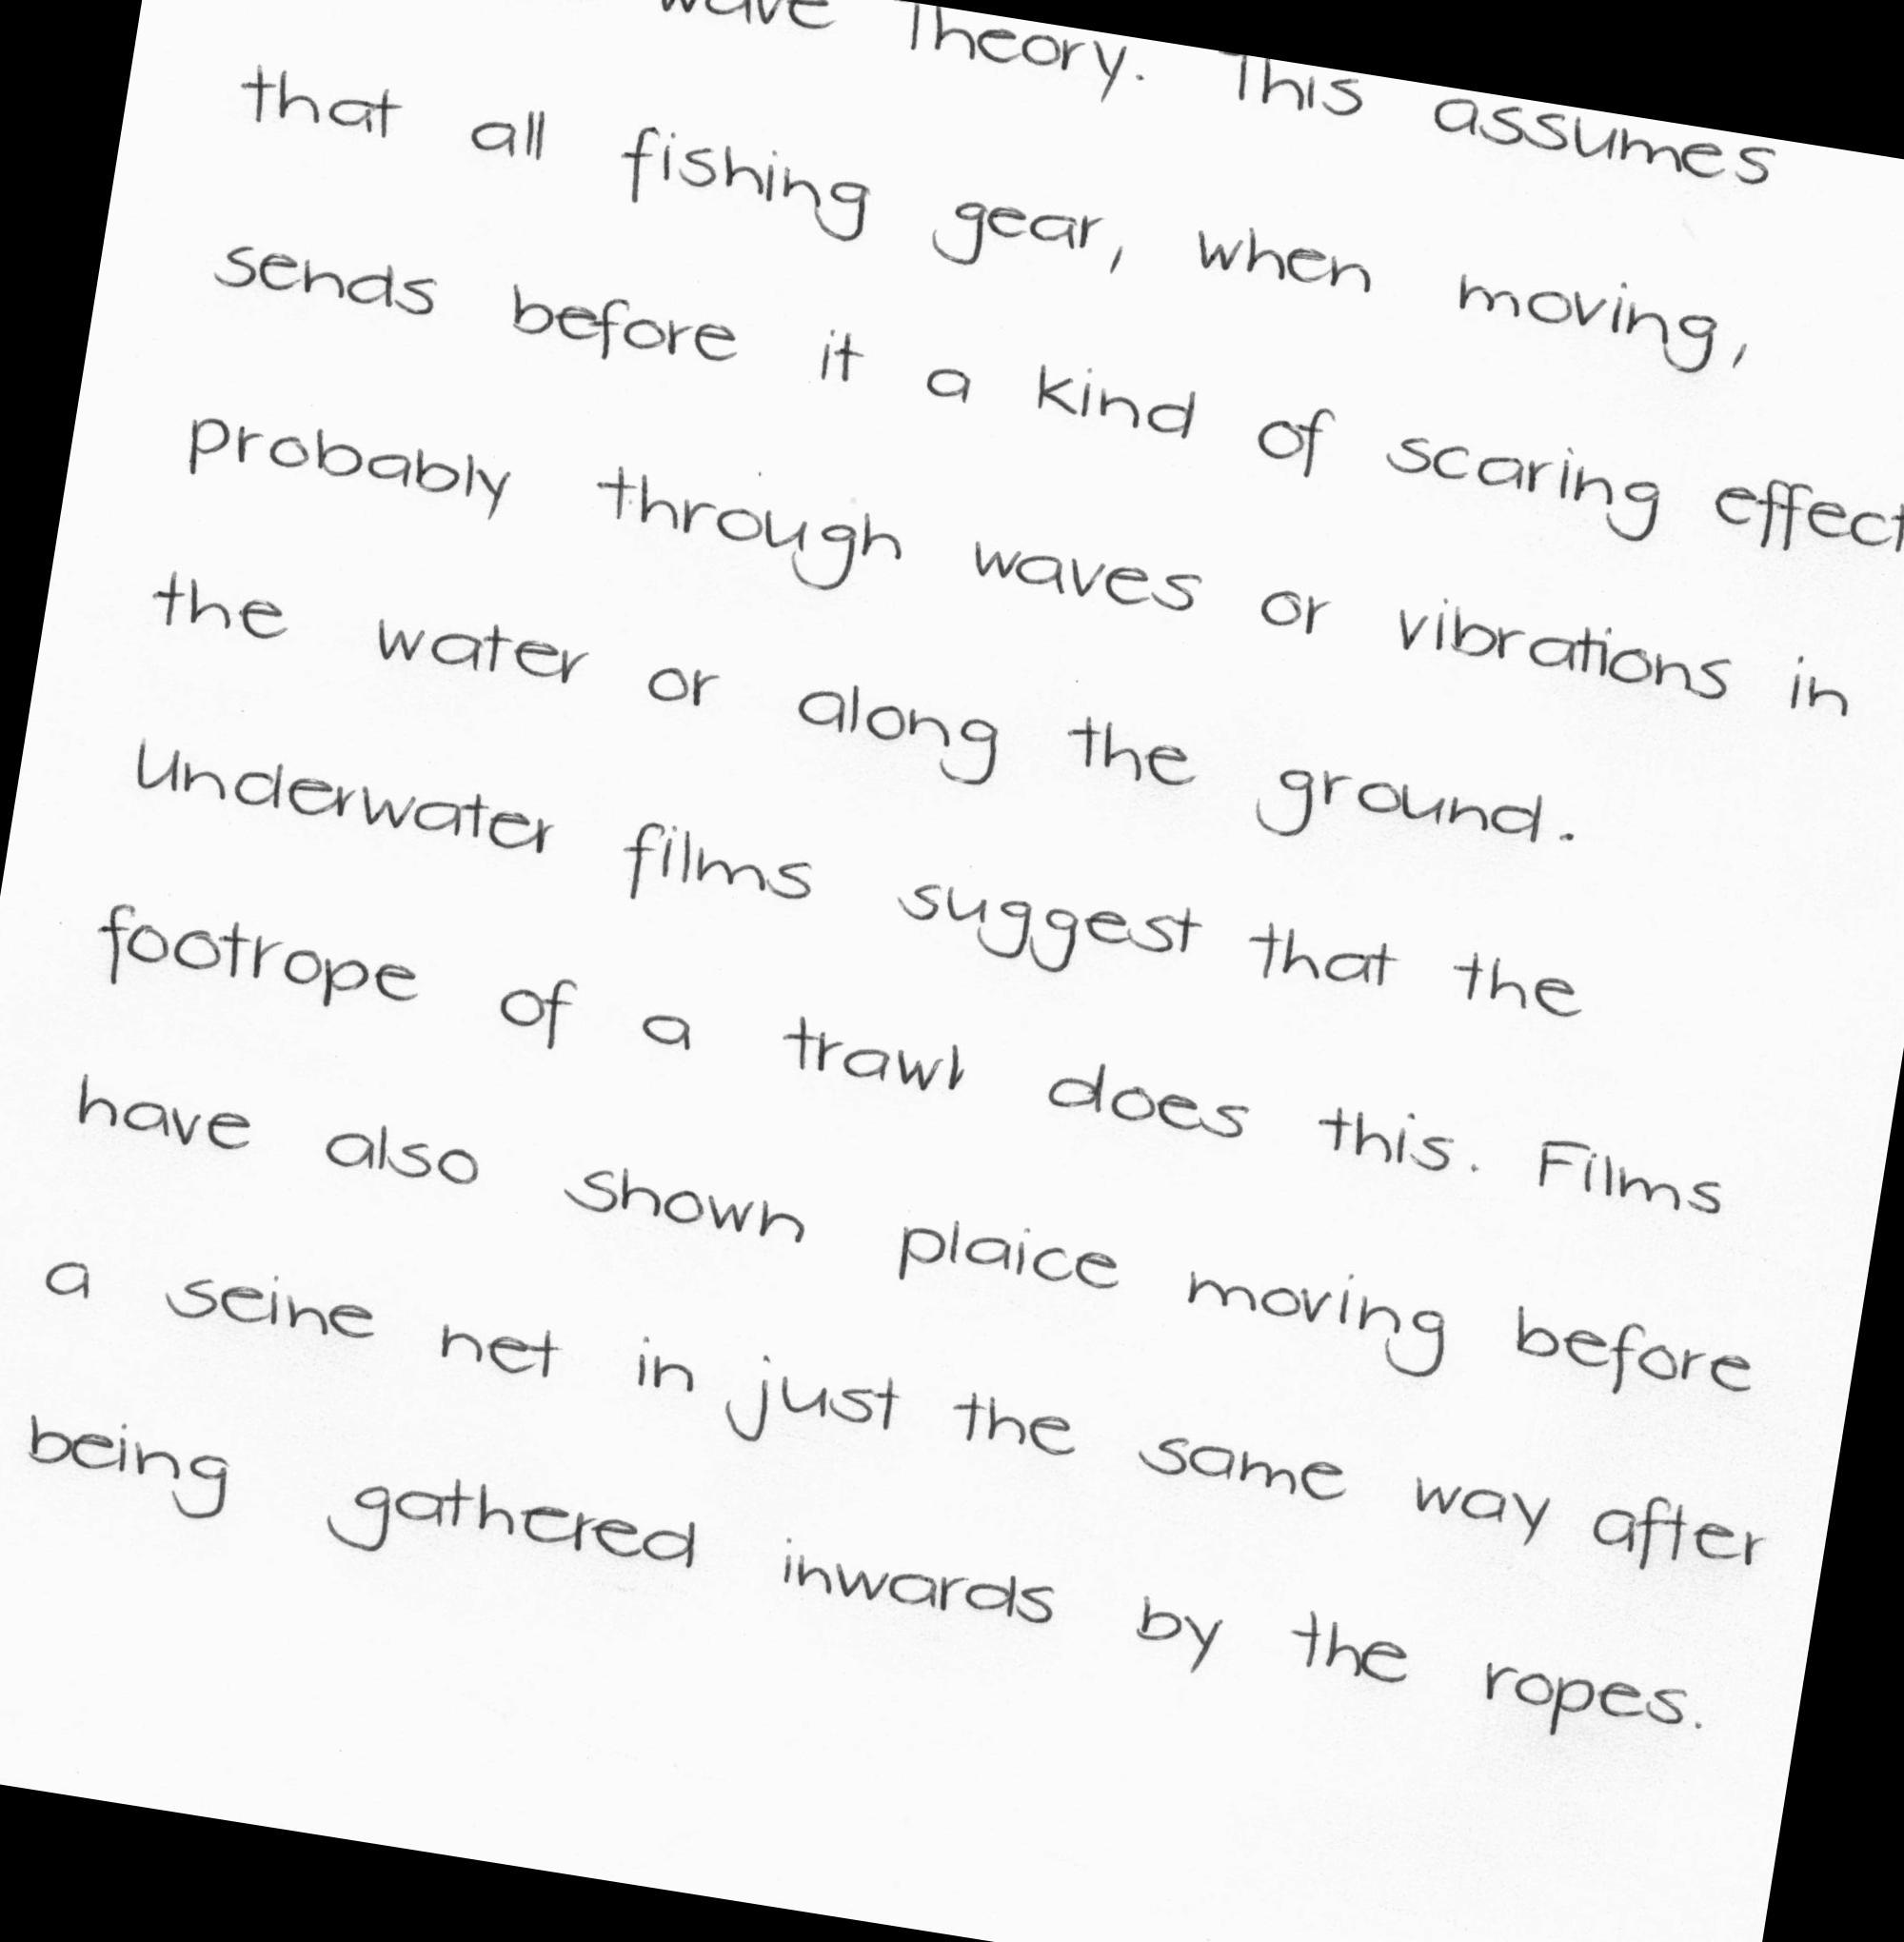 wave Theory. This assumes
that all fishing gear, when moving,
sends before it a kind of scaring effect
probably through waves or vibrations in
the water or along the ground.
Underwater films suggest that the
footrope of a trawl does this. Films
have also shown plaice moving before
a seine net in just the same way after
being gathered inwards by the ropes.